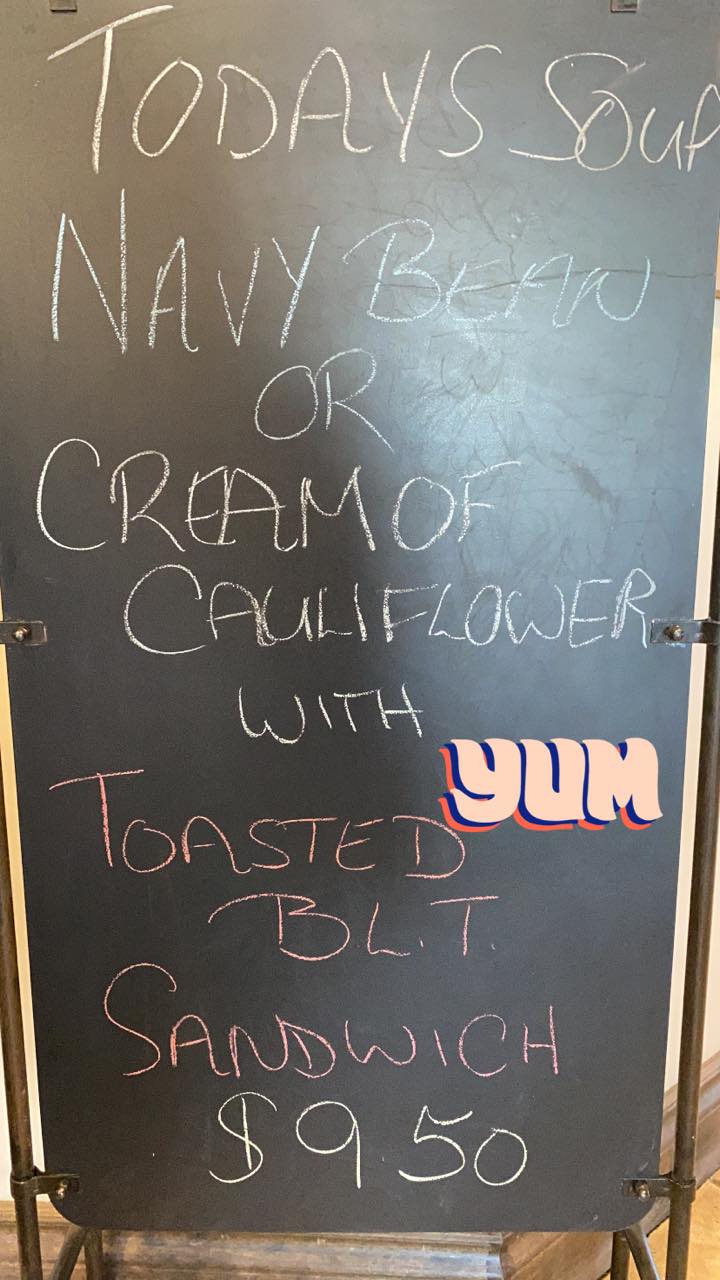 TODAYS SOUP
NAVY BEAN
OR
CREAM OF
CAULIFLOWER
WITH
YUM
TOASTED
B.L.T.
SANDWICH
$9 50